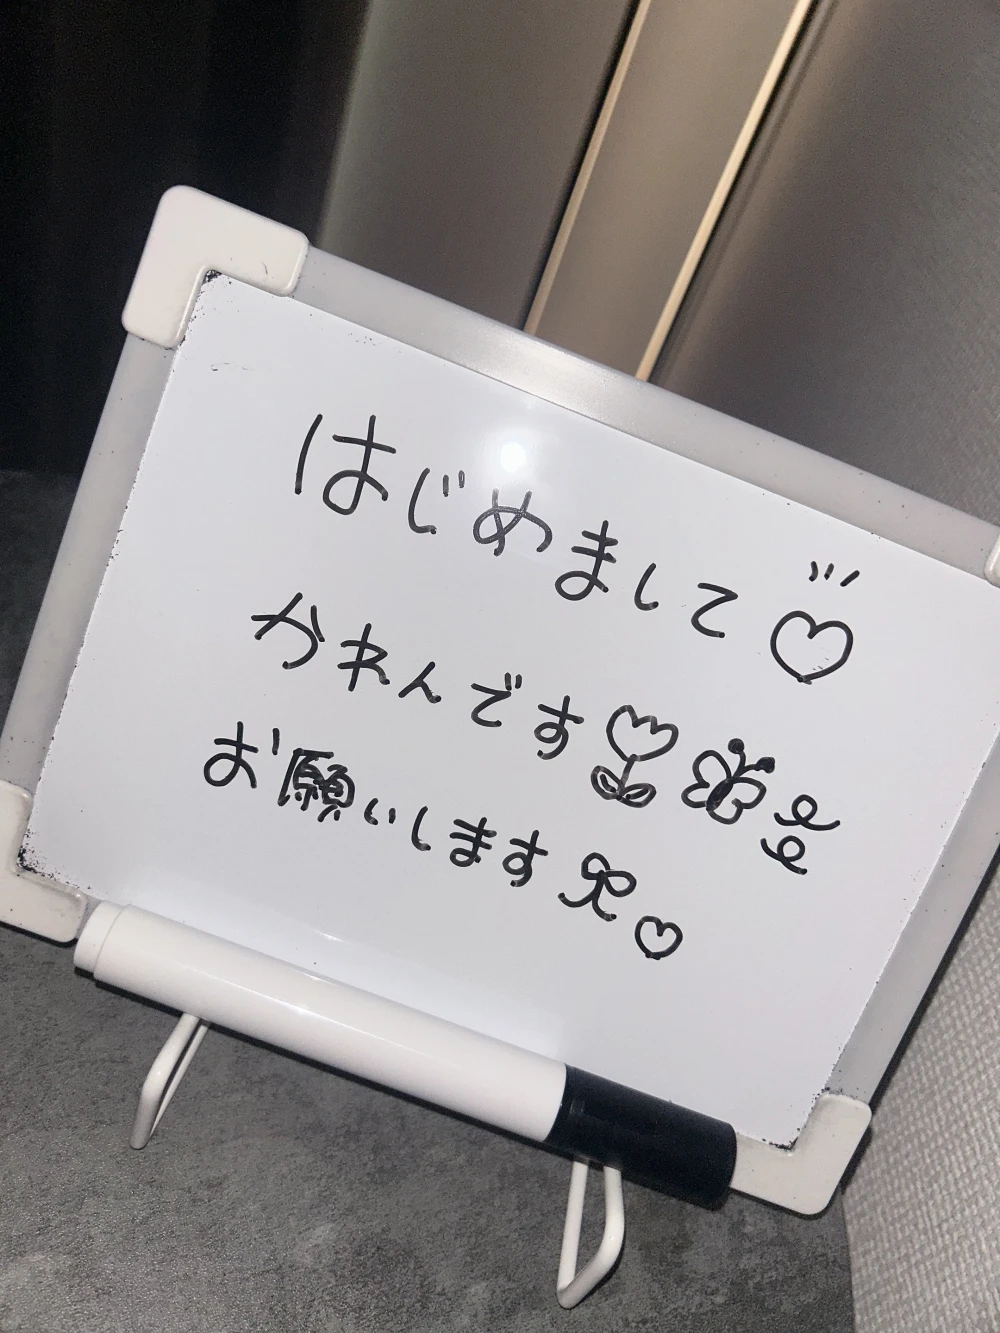 はじめまして♡
かれんです
お願いします♡